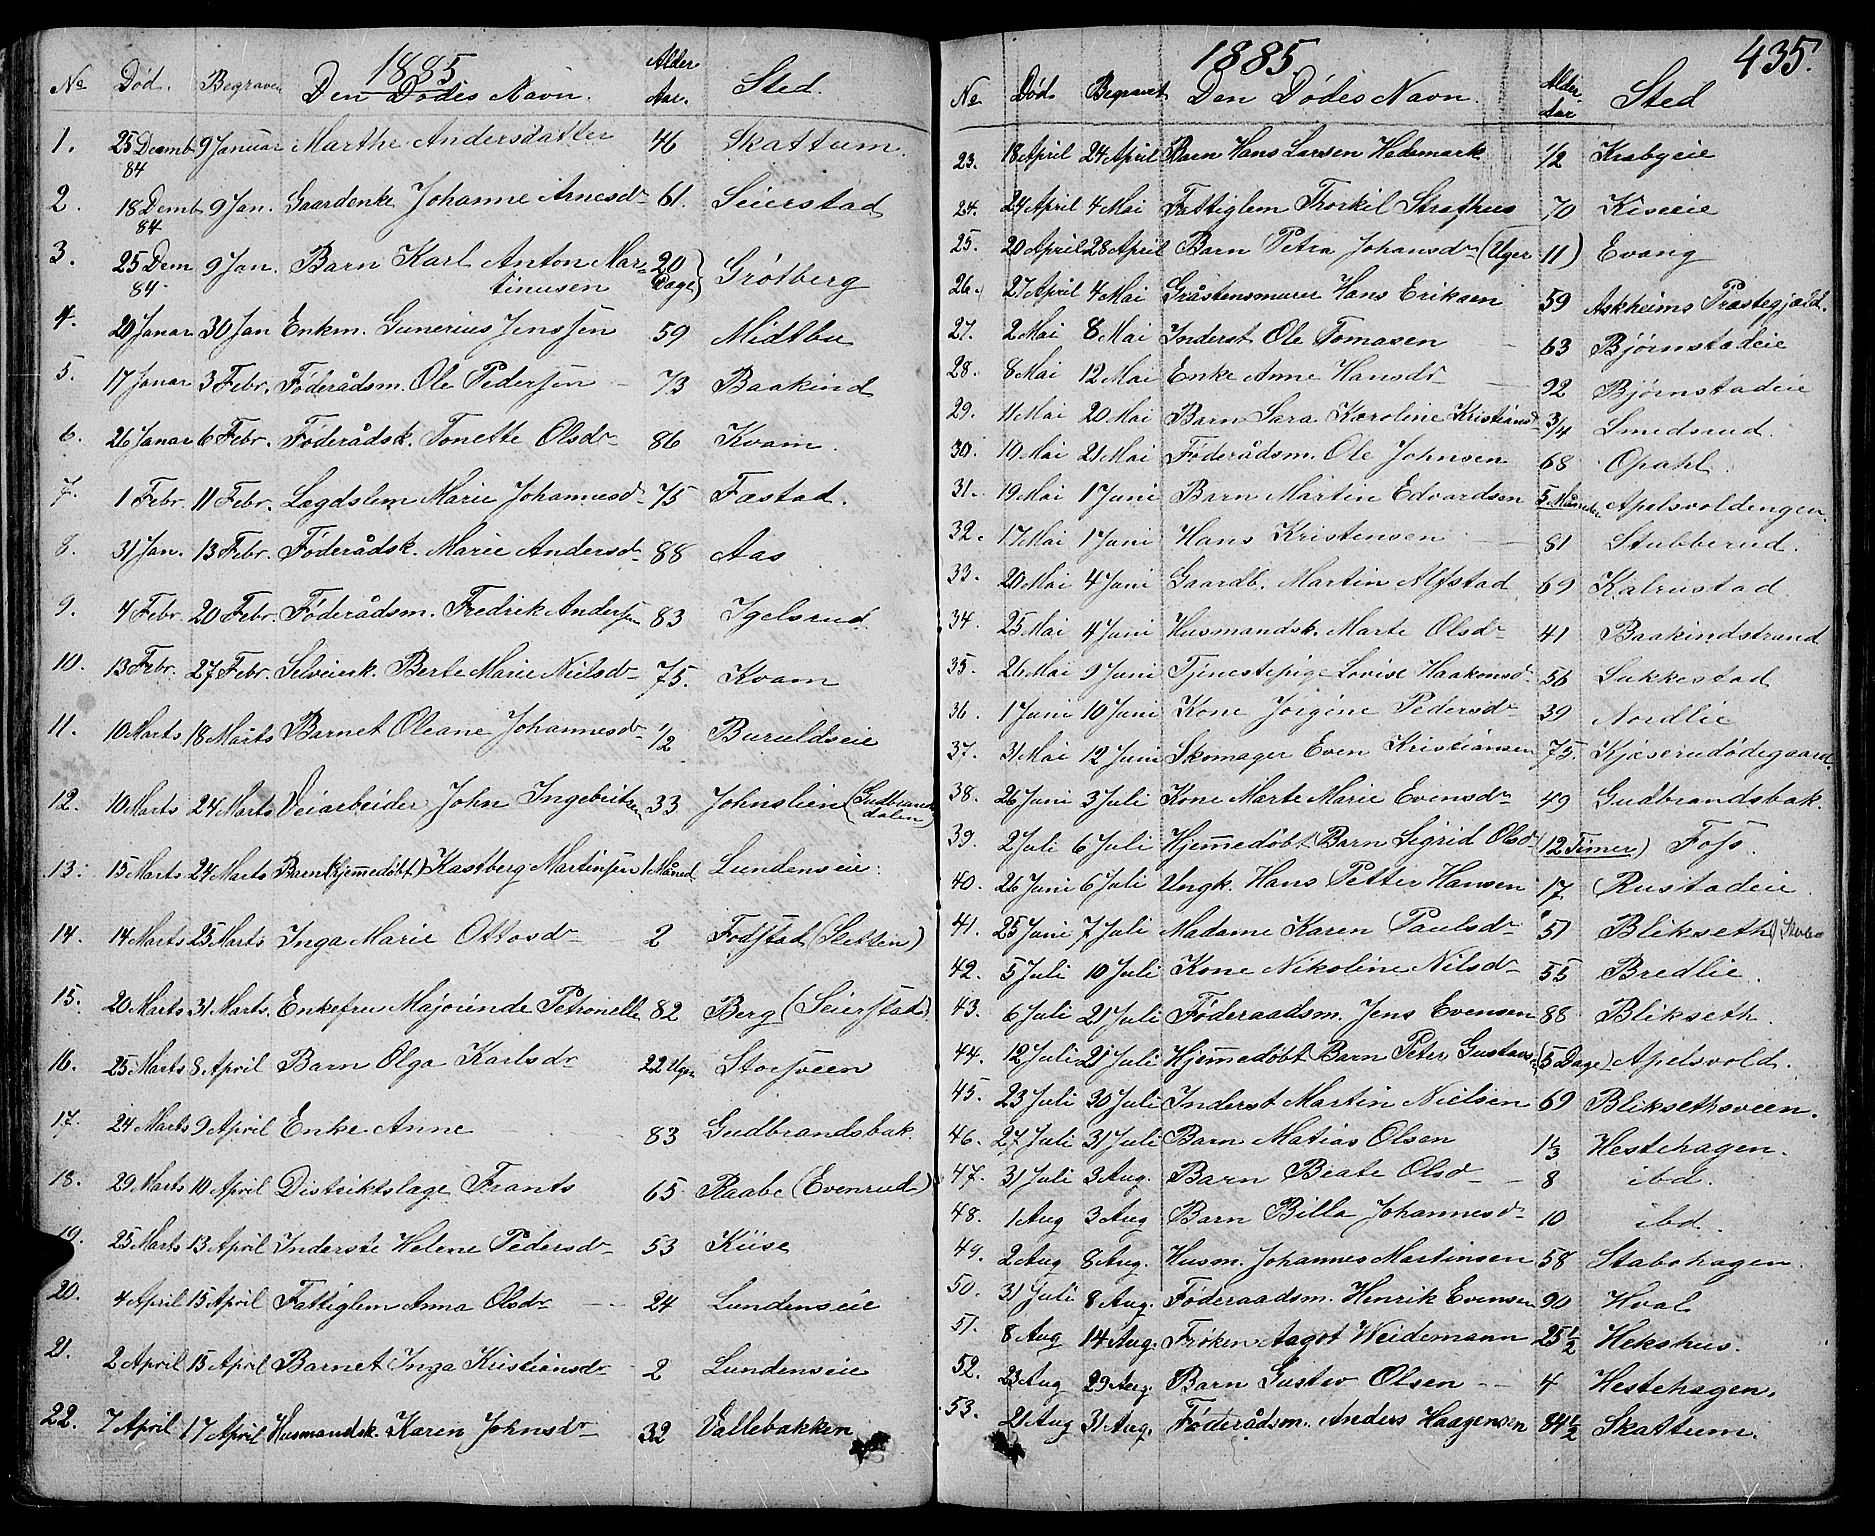 1885
No Død. Begraven Den Dødes Navn. Alder Aar. Sted.
1. 25 Decmb 84 9 Januar Marthe Andersdatter 46 Skattum.
2. 18 Demb 84 9 Jan. Gaardenke Johanne Arnesdr 61. Seierstad
3. 25 Dem 84 9 Jan. Barn Karl Anton Mar= 20 Dage) Grötberg
tinusen
4. 20 Januar 30 Jan Enkm. Gunerius Jenssen 59 Midtbu
5. 17 Januar 3 Febr. Föderådsm. Ole Pedersen 73 Baakind
6. 26 Januar 6 Febr. Föderådsk. Tonette Olsdr 86 Kvam.
7. 1 Febr. 11 Febr. Lægdslem Marie Johannesd 75 Fæstad.
8. 31 Jan. 13 Febr. Föderådsk. Marie Andersdr 88 Aas
9. 4 Febr. 20 Febr. Föderådsm. Fredrik Andersen 83 Igelsrud.
10. 13 Febr. 27 Febr. Selveierk. Berte Marie Nielsdr 75. Kvam
11. 10 Marts 18 Marts Barnet Oleane Johannesdr 1/2 Buruldseie
12. 10 Marts 24 Marts Veiarbeider John Ingebritsen 33 Johnslien (Gudbrands
dalen)
13. 15 Marts 24 Marts Barn (Hjemmedöbt) Kastberg Martinsen 1 Måned Lundenseie.
14. 14 Marts 25 Marts Inga Marie Ottosdr 2 Fodstad (Sletten)
15. 20 Marts 31 Marts. Enkefru Majorinde Petronelle 82 Berg (Seierstad)
16. 25 Marts 8 April Barn Olga Karlsdr 22 Uger Storsveen
17. 24 Marts 9 April Enke Anne 83 Gudbrandsbak.
18. 29 Marts 10 April Distriktslæge Frants 65 Raabe (Evenrud)
19. 25 Marts 13 April Inderste Helene Pedersdr 53 Kiise
20. 4 April 15 April Fattiglem Anna Olsdr 24 Lundenseie
21. 2 April 15 April Barnet Inga Kristiansdr 2 Lundenseie
22. 7 April 17 April Husmandsk. Karen Johnsdr 32 Vallebakken
1885 435.
No Död Begravet Den Dödes Navn. Alder Aar Sted
23. 18 April 24 April Barn Hans Larsen Hedemark 1/2 Krabyeie
24. 24 April 4 Mai Fattiglem Thorkil Strathus 70 Kiseeie
25. 20 April 28 April Barn Petra Johansdr (Uger 11) Evang
26. 27 April 4 Mai Gråstensmurer Hans Eriksen 59 Askheims Præstegjæld.
27. 2 Mai 8 Mai Inderst Ole Tomasen 63 Bjørnstadeie
28. 8 Mai 12 Mai Enke Anne Hansdr 92 Bjørnstadeie
29. 11 Mai 20 Mai Barn Sara Karoline Kristiansd 3/4 Smedsrud.
30. 10 Mai 21 Mai Föderådsm. Ole Johnsen 68 Opahl.
31. 19 Mai 1 Juni Barn Martin Edvardsen 5 Måneder Apelsvoldengen.
32. 17 Mai 1 Juni Hans Kristensen 81 Stubberud.
33. 20 Mai 4 Juni Gaardb. Martin Alfstad 69 Kalrustad
34. 25 Mai 4 Juni Husmandsk. Marte Olsdr 41 Baakindstrand
35. 26 Mai 9 Juni Tjenestepige Lovise Haakonsd 56 Sukkestad
36. 1 Juni 10 Juni Kone Jörgine Pedersdr 39 Nordlie
37. 31 Mai 12 Juni Skomager Even Kristiansen 75. Kjøserudødegaard.
38. 26 Juni 3 Juli Kone Marte Marie Evensdr 49 Gudbrandsbak.
39. 2 Juli 6 Juli Hjemmedöbt Barn Sigrid Olsdr (12 Timer) Foss.
40. 26 Juni 6 Juli Ungk. Hans Petter Hansen 17 Rustadeie
41. 25 Juni 7 Juli Madame Karen Paulsdr 51 Blikseth
42. 5 Juli 10 Juli Kone Nikoline Nilsdr 55 Bredlie.
43. 6 Juli 21 Juli Föderaadsm. Jens Evensen 88 Blikseth.
44. 12 Juli 21 Juli Hjemmedöbt Barn Peter Gustavs. (5 Dage) Apelsvold.
45. 23 Juli 30 Juli Inderst Martin Nielsen 69 Bliksethsveen.
46. 27 Juli 31 Juli Barn Matias Olsen 1 1/3 Hestehagen.
47. 31 Juli 3 Aug. Barn Beate Olsdr 8 ibd.
48. 1 Aug 3 Aug Barn Billa Johannesdr 10 ibd.
49. 2 Aug 8 Aug. Husm. Johannes Martinsen 58 Stabohagen.
50. 31 Juli 8 Aug. Föderaadsm. Henrik Evensen 90 Hval
51. 8 Aug 14 Aug. Fröken Aagot Weidemann 25 1/2 Hekshus.
52. 23 Aug 29 Aug. Barn Gustav Olsen 4 Hestehagen.
53. 21 Aug 31 Aug. Föderådsm. Anders Haagensen 84 1/2 Skattum.